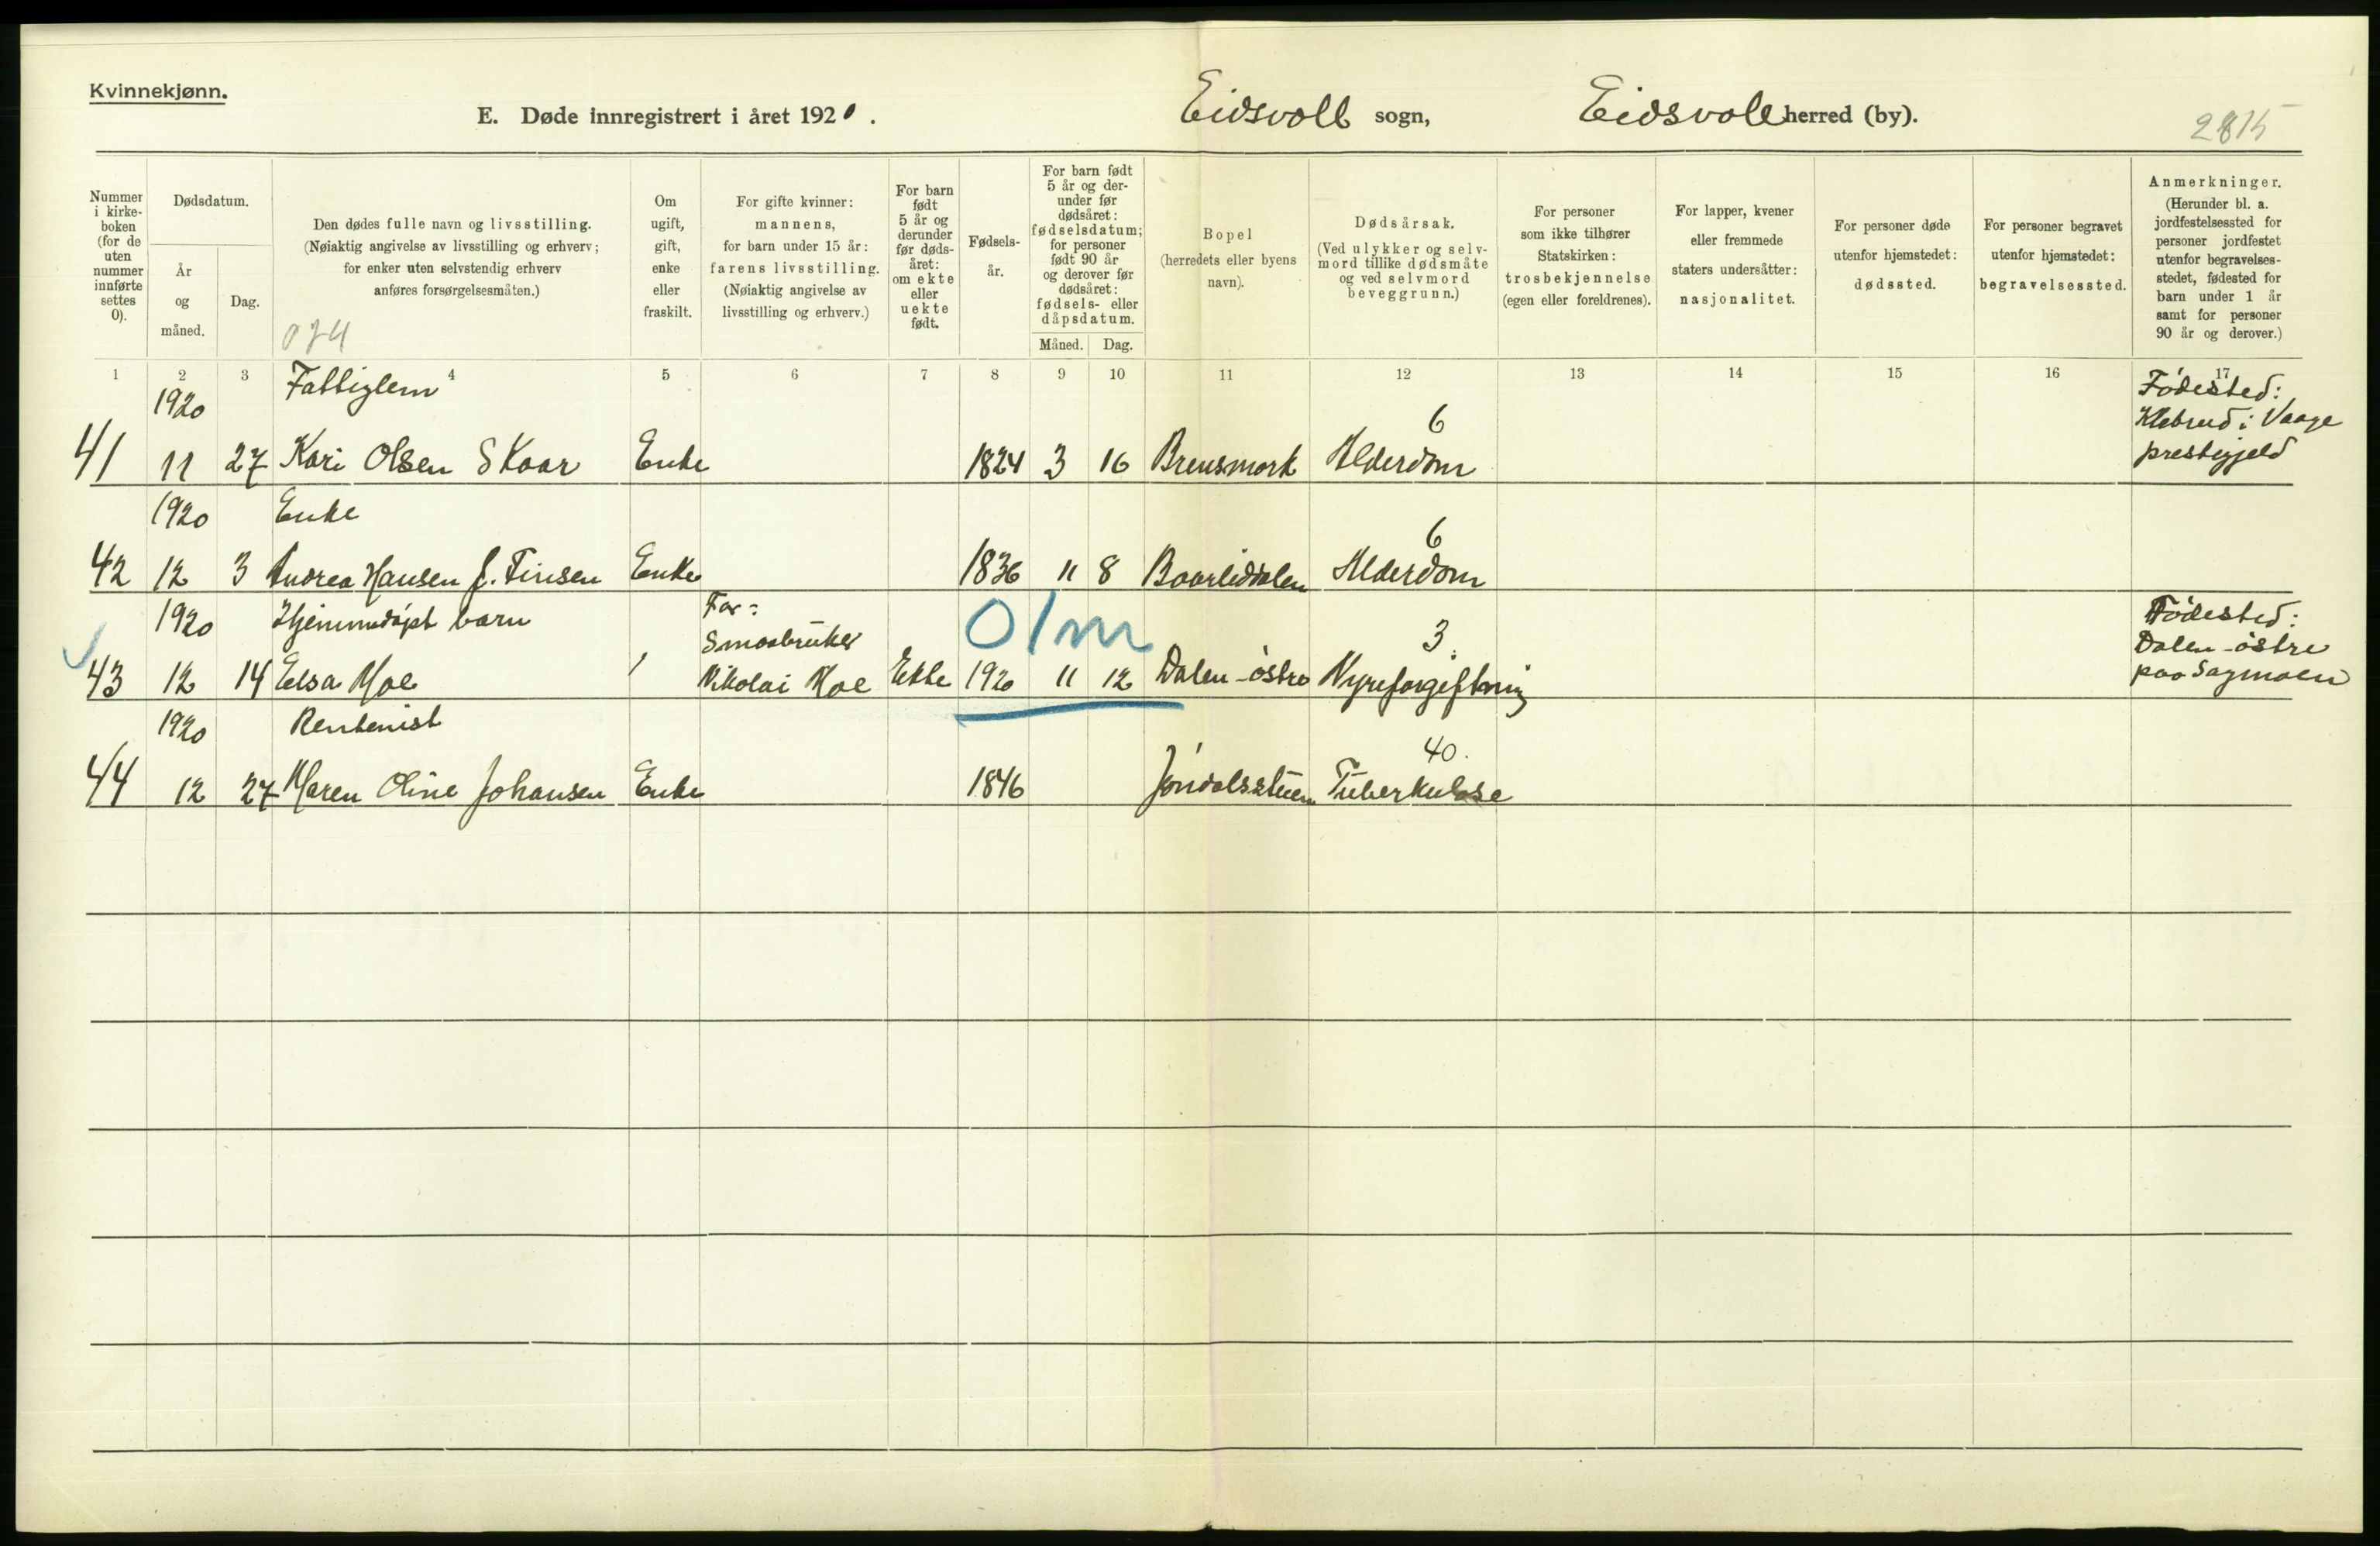 Kvinnekjønn.
E. Døde innregistrert i året 1920. Eidsvoll sogn, Eidsvoll herred (by).
2815
Nummer i kirkeboken (for de uten nummer innførte settes 0).
Dødsdatum.
År og måned.
Dag.
Den dødes fulle navn og livsstilling.
(Nøiaktig angivelse av livsstilling og erhverv;
for enker uten selvstendig erhverv
anføres forsørgelsesmåten.)
074
Om ugift, gift, enke eller fraskilt.
For gifte kvinner:
mannens,
for barn under 15 år:
farens livsstilling.
(Nøiaktig angivelse av
livsstilling og erhverv.)
For barn født 5 år og derunder før dødsåret: om ekte eller uekte født.
Fødselsår.
For barn født 5 år og derunder før dødsåret: fødselsdatum; for personer født 90 år og derover før dødsåret: fødsels- eller dåpsdatum.
Måned. Dag.
Bopel
(herredets eller byens
navn).
Dødsårsak.
(Ved ulykker og selvmord tillike dødsmåte og ved selvmord beveggrunn.)
For personer
som ikke tilhører
Statskirken:
trosbekjennelse
(egen eller foreldrenes).
For lapper, kvener
eller fremmede
staters undersåtter:
nasjonalitet.
For personer døde
utenfor hjemstedet:
dødssted.
For personer begravet
utenfor hjemstedet:
begravelsessted.
Anmerkninger.
(Herunder bl. a.
jordfestelsessted for
personer jordfestet
utenfor begravelsesstedet, fødested for
barn under 1 år
samt for personer
90 år og derover.)
1 2 3 4 5 6 7 8 9 10 11 12 13 14 15 16 17
1920 Fattiglem 6 Födested:
i Vaage
41 11 27 Kari Olsen Skaar Enke 1824 3 16 Brensmork Alderdom prestegjeld
1920 Enke 6
42 12 3 Andrea Hansen f. Finsen Enke 1836 11 8 Baarliddalen Alderdom
1920 Hjemmedöpt barn Far: Smaabruker 01m 3. Födested:
Dalen-östre
43 12 14 Elsa Moe / Nikolai Moe Ekte 1920 11 12 Dalen-östre Nyreforgiftning paa Sagmoen
1920 Rentenist 40.
44 12 27 Maren Oline Johansen Enke 1846 Jöndalsstuen Tuberkulose